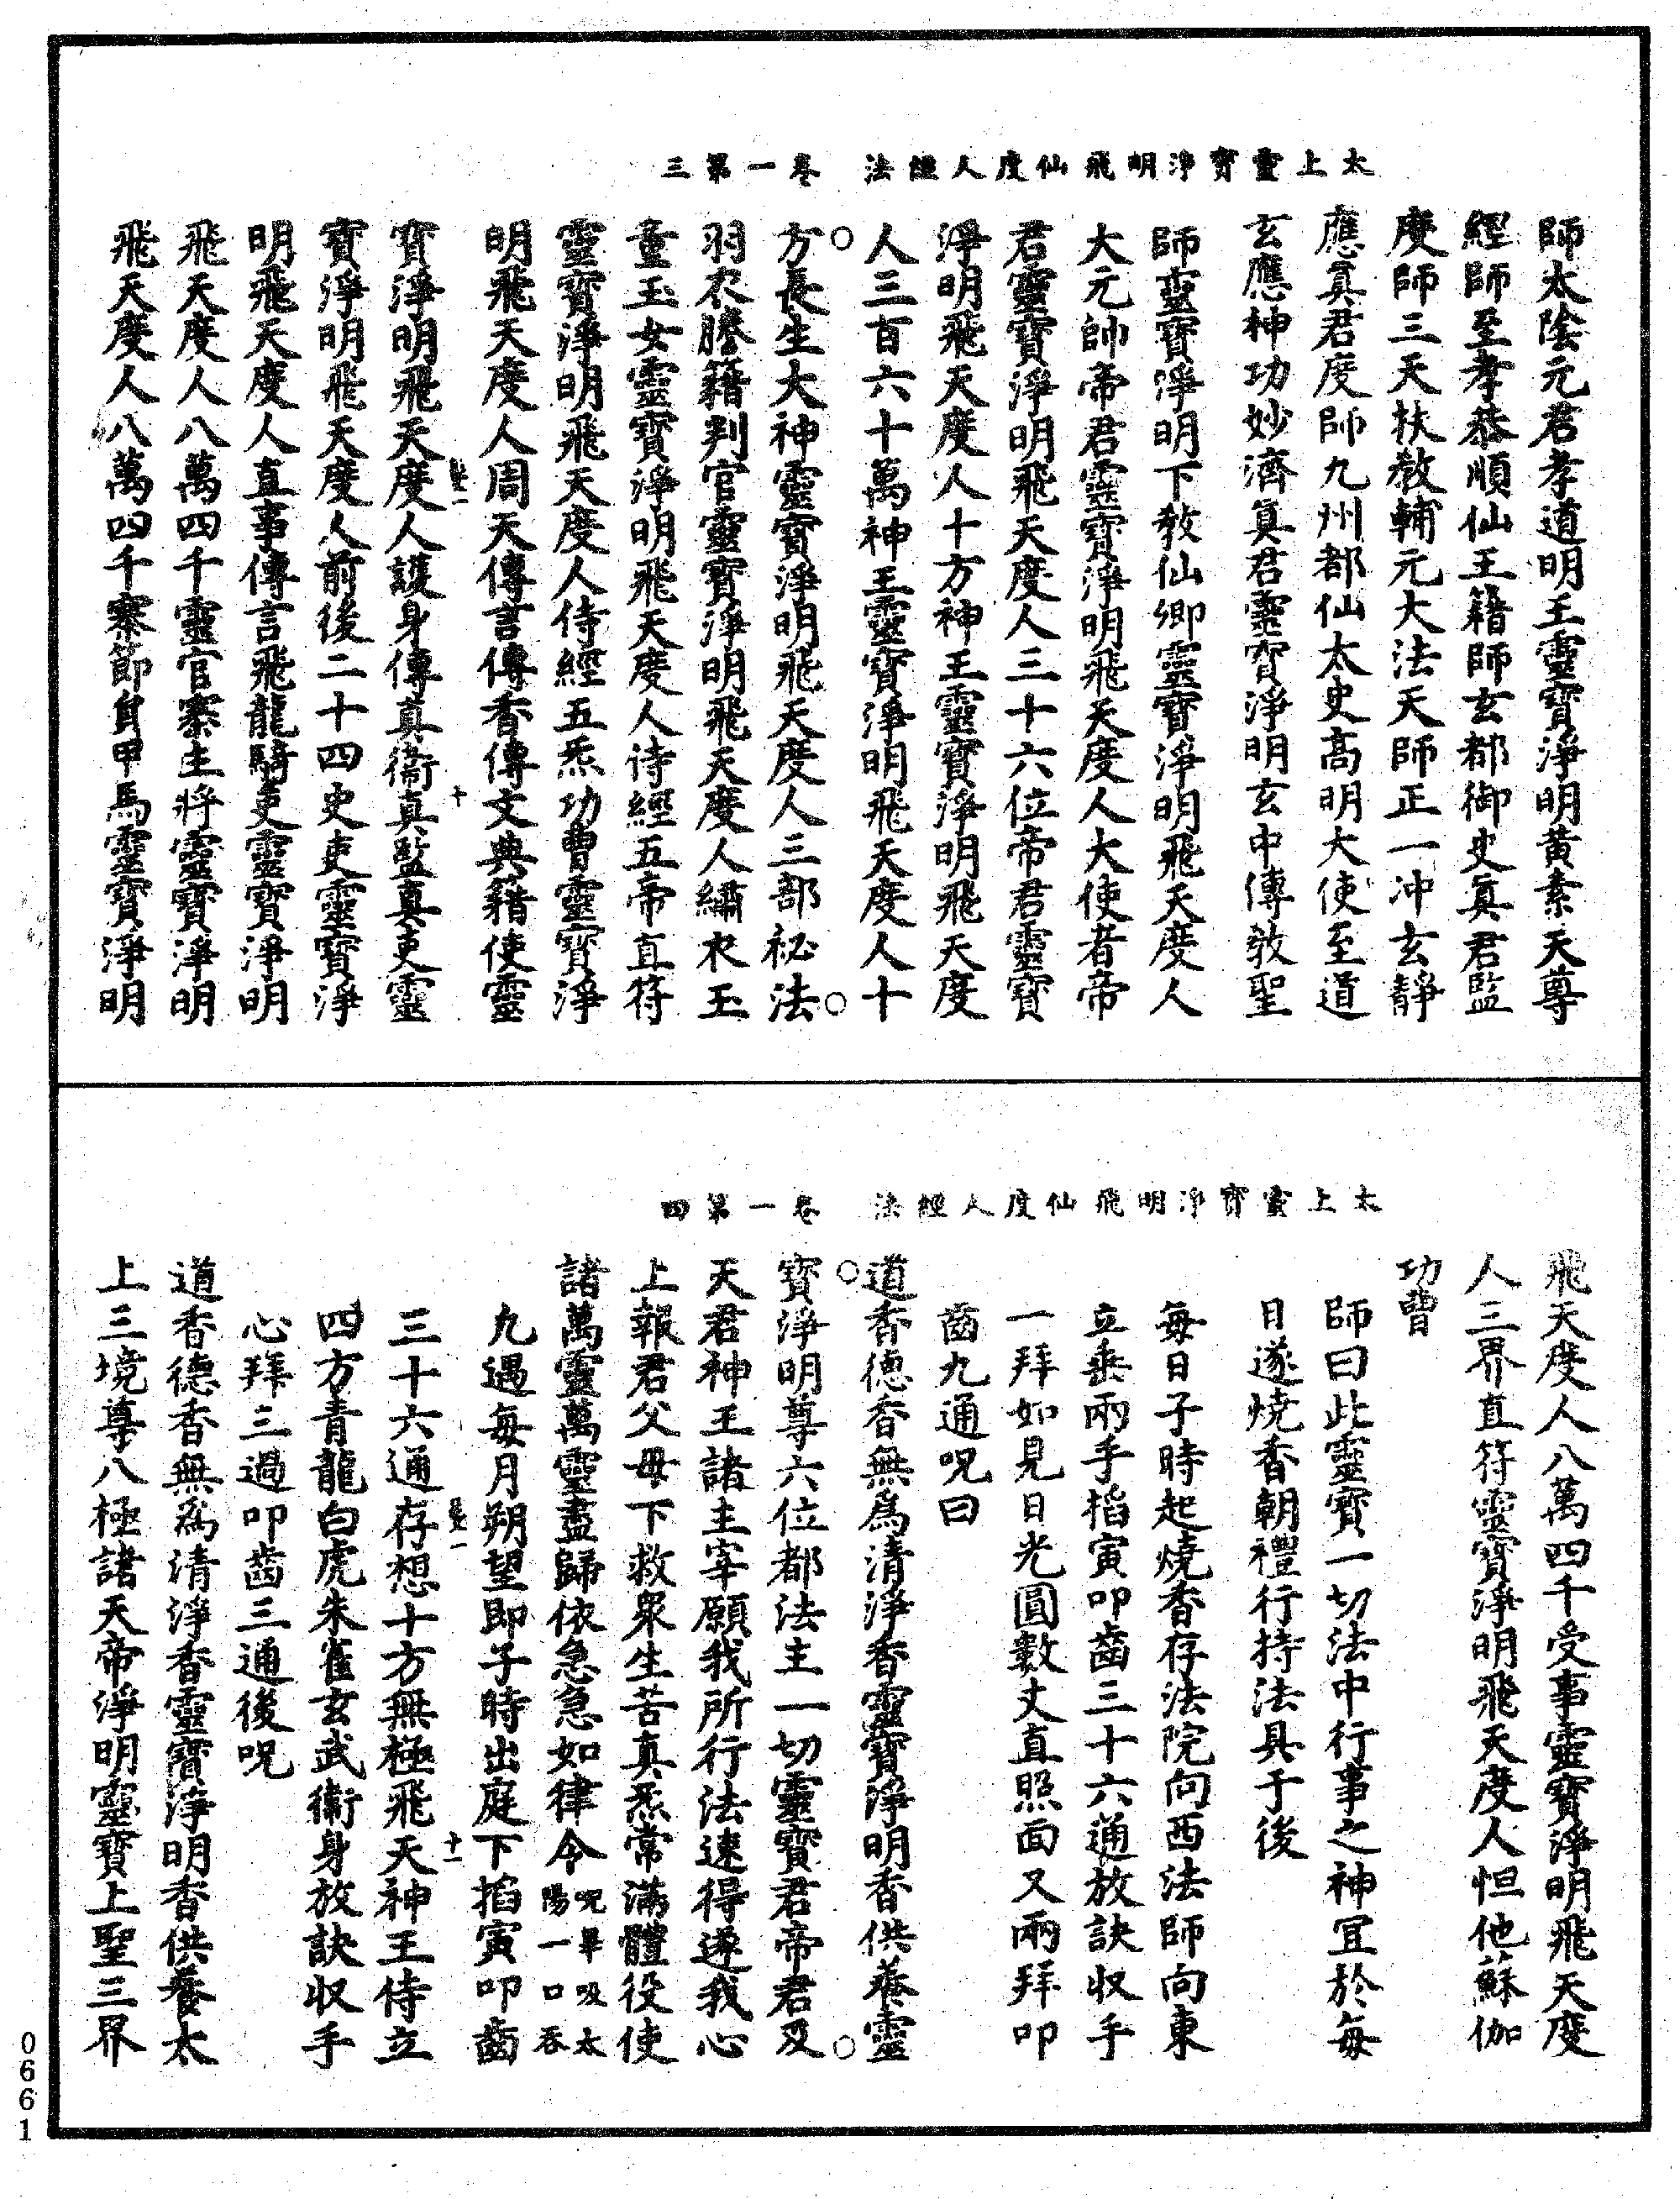 太上靈寶淨明飛仙度人經法 卷一第三
師太陰元君孝道明王靈寶淨明黄素天尊
經師至孝恭順仙王籍師玄都御史眞君監
度師三天扶敎輔元大法天師正一冲玄靜
應眞君度師九州都仙太史高明大使至道
玄應神功妙濟眞君靈寶淨明玄中傳敎聖
師靈寶淨明下敎仙卿靈寶淨明飛天度人
大元帥帝君靈寶淨明飛天度人大使者帝
君靈寶淨明飛天度人三十六位帝君靈寶
淨明飛天度人十方神王靈寶淨明飛天度
人三百六十萬神王靈寶淨明飛天度人十
方長生大神靈寶淨明飛天度人三部祕法
羽衣謄籍判官靈寶淨明飛天度人繡衣玉
童玉女靈寶淨明飛天度人侍經五帝直符
靈寶淨明飛天度人侍經五炁功曹靈寶淨
明飛天度人周天傳言傳香傳文典籍使靈
寶淨明飛天度人護身傳真衞真監真吏靈
寶淨明飛天度人前後二十四史吏靈寶淨
明飛天度人直事傳言飛龍騎吏靈寶淨明
飛天度人八萬四千靈官寨主將靈寶淨明
飛天度人八萬四千寨節身甲馬靈寶淨明
十
太上靈寶淨明飛仙度人經法 卷一第四
飛天度人八萬四千受事靈寶淨明飛天度
人三界直符靈寶淨明飛天度人怛他蘇伽
功曹
師曰此靈寶一切法中行事之神宜於每
日遂燒香朝禮行持法具于後
每日子時起燒香存法院向西法師向東
立垂兩手搯寅叩齒三十六通放訣収手
一拜如見日光圓數丈直照面又兩拜叩
齒九通呪曰
道香德香無爲清淨香靈寶淨明香供養靈
寶淨明尊六位都法主一切靈寶君帝君及
天君神王諸主宰願我所行法速得遂我心
上報君父母下救衆生苦真炁常滿體役使
諸萬靈萬靈盡歸依急急如律令呪畢吸太陽一口吞
九過每月朔望即子時出庭下搯寅叩齒
三十六通存想十方無極飛天神王侍立
四方青龍白虎朱雀玄武衞身放訣収手
心拜三過叩齒三通後呪
道香德香無爲清淨香靈寶淨明香供養太
上三境尊八極諸天帝淨明靈寶上聖三界
十一
0661